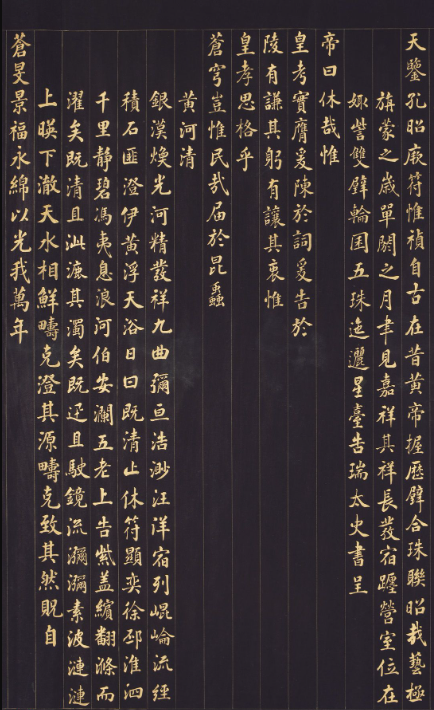 天鑒孔昭厥符惟禎自古在昔黃帝握歷璧合珠聯昭哉藝極
旃蒙之歲單閼之月聿見嘉祥其祥長發宿躔營室位在
娵訾雙璧輪囷五珠迤邐星臺告瑞太史書呈
帝曰休哉惟
皇考實膺爰陳於詞爰告於
陵有謙其躬有讓其衷惟
皇孝思格乎
蒼穹豈惟民哉屆於昆蟲
黃河清
銀漢煥光河精發祥九曲彌亘浩渺汪洋宿列崐崘流經
積石匪澄伊黃浮天浴日曰既清止休符顯奕徐邳淮泗
千里靜碧馮夷息浪河伯安瀾五老上告紫蓋繽翻滌而
濯矣既清且泚漉其濁矣既迅且駛鏡流瀰瀰素波漣漣
上暎下澈天水相鮮疇克澄其源疇克致其然貺自
蒼旻景福永綿以光我萬年